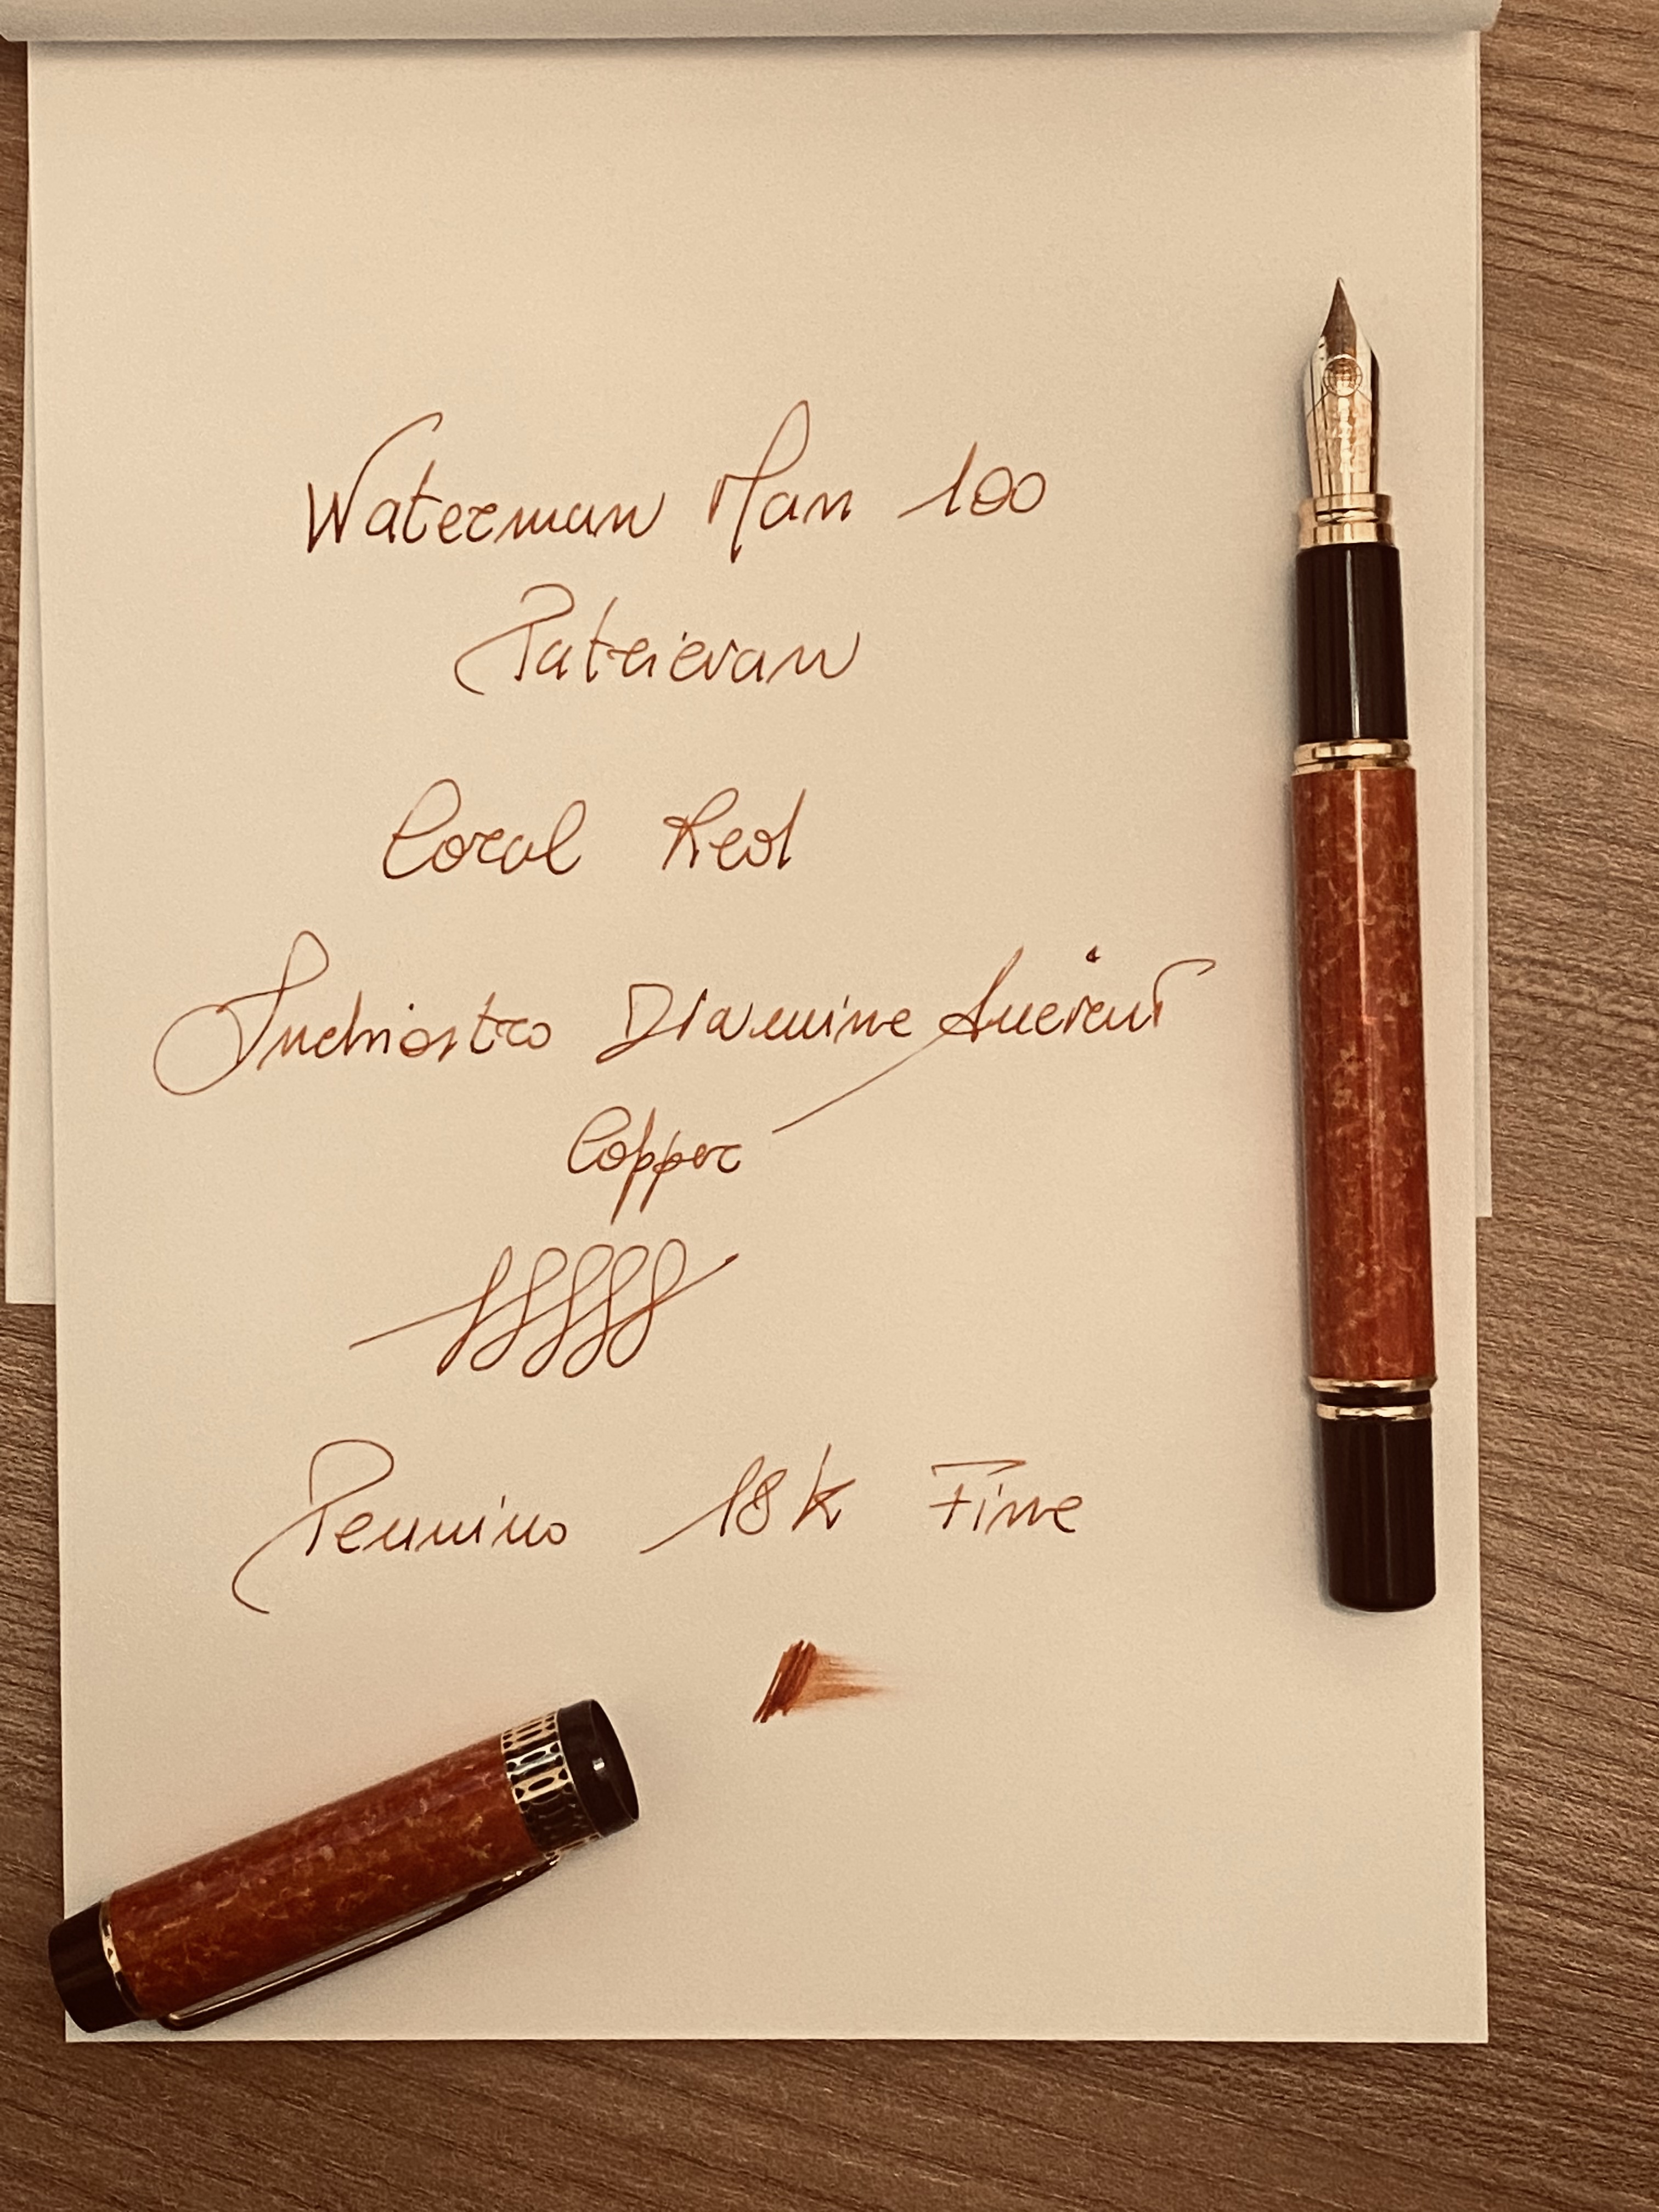 Waterman Man 100
Patrician
Coral Red
Inchiostro Diamine Ancient
Copper
Pennino 18k Fine